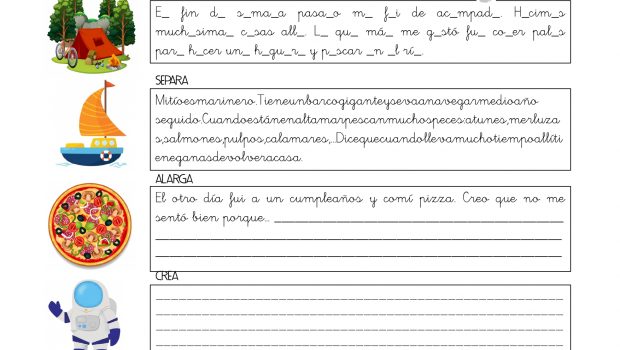 E_ fin d_ s_ma_a pasa_o m_ f_i de ac_mpad_. H_cim_s
much_sima_ c_sas all_. L_ qu_ má_ me g_stó fu_ co_er pal_s
par_ h_cer un_ h_gu_r_ y p_scar _n _l rí_.
SEPARA
Mitíoesmarinero.Tieneunbarcogiganteysevaanavegarmedioaño
seguido.Cuandoestánenaltamarpescanmuchospeces:atunes,merluza
s,salmones,pulpos,calamares,...Dicequecuandollevamuchotiempoallíti
eneganasdevolveracasa.
ALARGA
El otro día fui a un cumpleaños y comí pizza. Creo que no me
sentó bien porque... ____________________________________
CREA